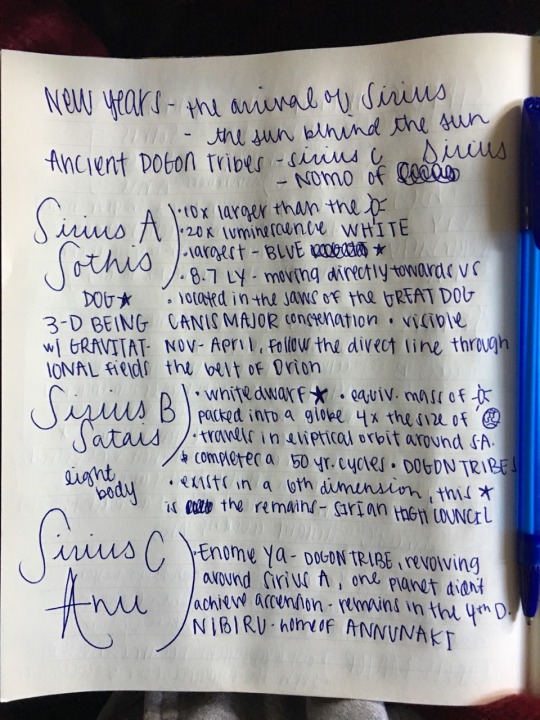 New years - the arrival of Sirius
- the sun behind the sun
Ancient DOGON Tribes - sirius C Sirius
- NOMO of
Sirius A
Sothis
DOG★
3-D BEING
w/ GRAVITAT-
IONAL fields
• 10x larger than the ☼
• 20x luminescence WHITE
• largest - BLUE ★
• 8.7 LY - moving directly towards US
• located in the jaws of the GREAT DOG
CANIS MAJOR constenation • visible
NOV - April, follow the direct line through
the belt of Orion
Sirius B
Satais
light
body
• white dwarf ★ • equiv. mass of ☼
packed into a globe 4x the size of
• travels in eliptical orbit around S.A.
completes a 50 yr. cycles • DOGON TRIBES
• exists in a 6th dimension, this ★
is the remains - SIRIAN HIGH COUNCIL
Sirius C
Anu
• Enome Ya - DOGON TRIBE, revolving
around Sirius A, one planet didn't
achieve accension - remains in the 4th D.
NIBIRU - home of ANNUNAKI